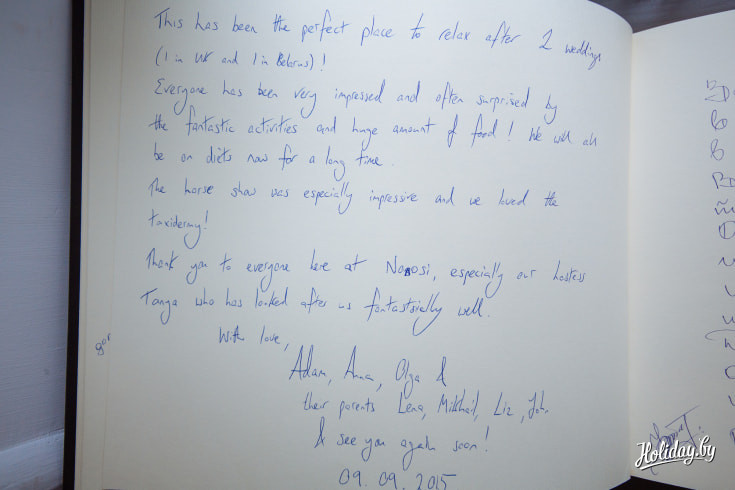 This has been the perfect place to relax after 2 weddings
(1 in UK and 1 in Belarus)!
Everyone has been very impressed and often surprised by
the fantastic activities and huge amount of food! We will all
be on diets now for a long time.
The horse show was especially impressive and we loved the
taxidermy!
Thank you to everyone here at Nonosi, especially our hostess
Tanya who has looked after us fantastically well.
With love,
Adam, Anna, Olga &
their parents Lena, Mikhail, Liz, John
& see you again soon!
09.09.2015
Holiday.by